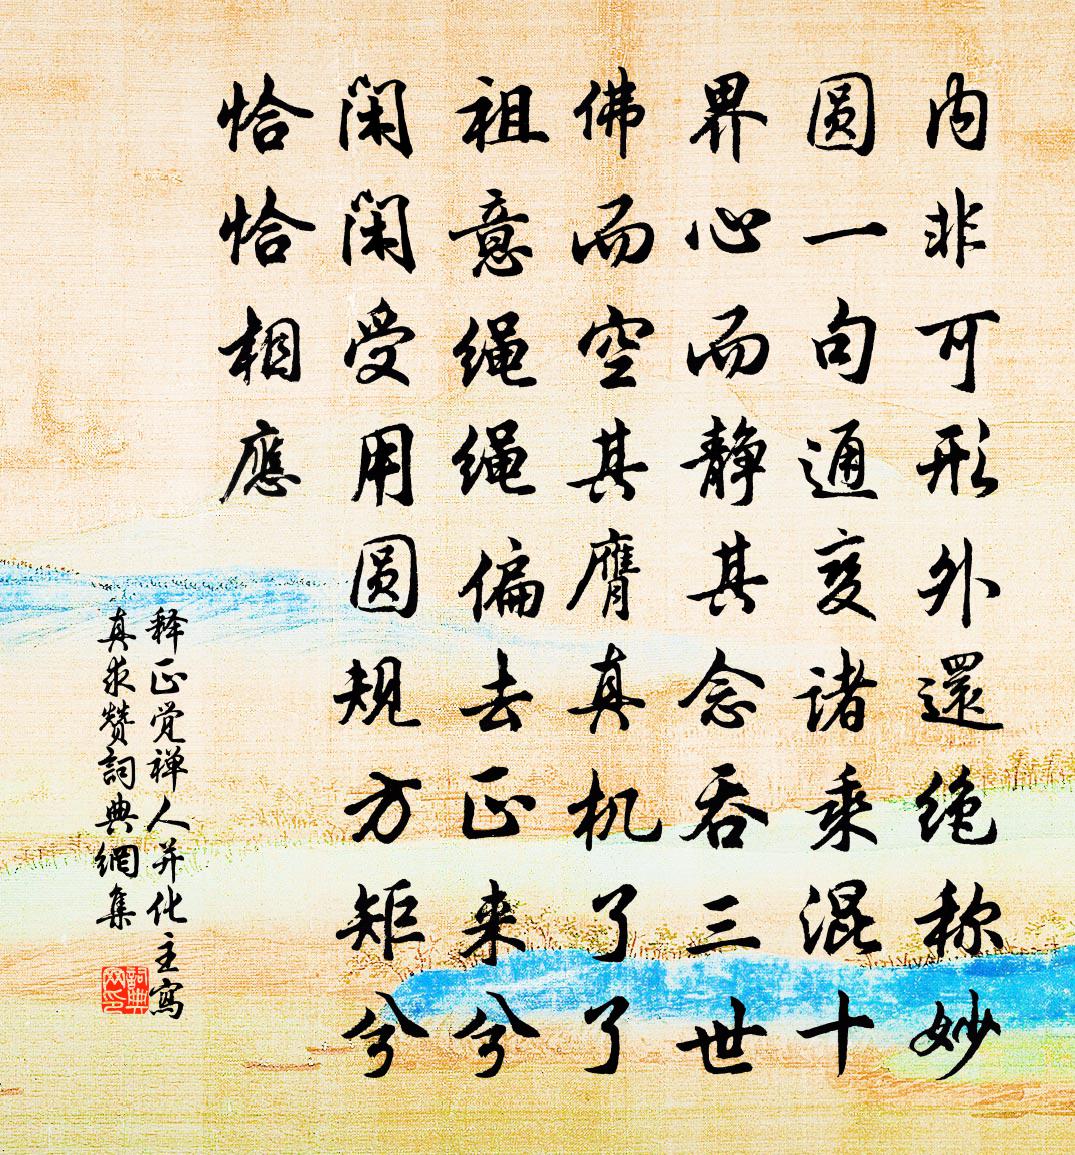 内非可形外還绝称妙
圆一句通变诸乘混十
界心而静其念吞三世
佛而空其膺真机了了
祖意绳绳偏去正来兮
闲闲受用圆规方矩兮
恰恰相應
释正觉禅人并化主寫
真求赞詞典網集